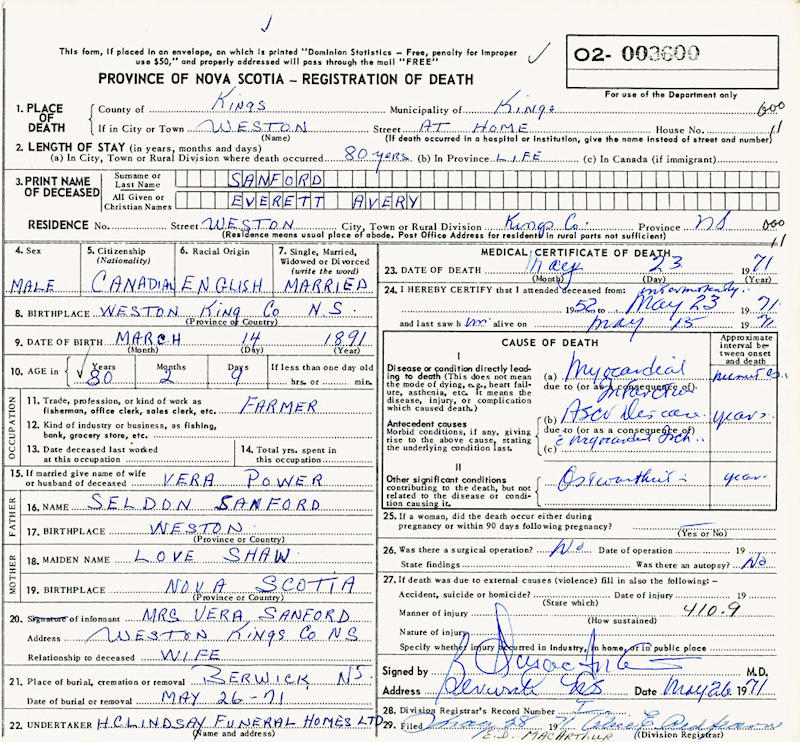 This form, if placed in an envelope, on which is printed "Dominion Statistics – Free, penalty for improper
use $50," and properly addressed will pass through the mail "FREE"
PROVINCE OF NOVA SCOTIA – REGISTRATION OF DEATH
02- 003600
For use of the Department only
1. PLACE OF DEATH County of Kings Municipality of Kings 600
If in City or Town WESTON Street AT HOME House No. 11
(Name) (If death occurred in a hospital or institution, give the name instead of street and number)
2. LENGTH OF STAY (in years, months and days)
(a) In City, Town or Rural Division where death occurred 80 years (b) In Province LIFE (c) In Canada (if immigrant)
3. PRINT NAME OF DECEASED Surname or Last Name SANFORD
All Given or Christian Names EVERETT AVERY
RESIDENCE No. Street WESTON City, Town or Rural Division Kings Co. Province NS 000
(Residence means usual place of abode. Post Office Address for residents in rural parts not sufficient) 11
4. Sex 5. Citizenship (Nationality) 6. Racial Origin 7. Single, Married, Widowed or Divorced (write the word)
MALE CANADIAN ENGLISH MARRIED
8. BIRTHPLACE WESTON King Co N.S.
(Province or Country)
9. DATE OF BIRTH MARCH 14 1891
(Month) (Day) (Year)
10. AGE in Years Months Days If less than one day old
80 2 9 hrs. or min.
OCCUPATION
11. Trade, profession, or kind of work as fisherman, office clerk, sales clerk, etc. FARMER
12. Kind of industry or business, as fishing, bank, grocery store, etc.
13. Date deceased last worked at this occupation 14. Total yrs. spent in this occupation
15. If married give name of wife or husband of deceased VERA POWER
FATHER
16. NAME SELDON SANFORD
17. BIRTHPLACE WESTON
(Province or Country)
MOTHER
18. MAIDEN NAME LOVE SHAW
19. BIRTHPLACE NOVA SCOTIA
(Province or Country)
20. Signature of informant MRS VERA SANFORD
Address WESTON KINGS CO NS
Relationship to deceased WIFE
21. Place of burial, cremation or removal BERWICK NS.
Date of burial or removal MAY 26-71
22. UNDERTAKER H.C LINDSAY FUNERAL HOMES LTD
(Name and address)
MEDICAL CERTIFICATE OF DEATH
23. DATE OF DEATH May 23 1971
(Month) (Day) (Year)
24. I HEREBY CERTIFY that I attended deceased from: intermittently
1952 to May 23 1971
and last saw him alive on May 15 1971
CAUSE OF DEATH
Approximate interval between onset and death
I
Disease or condition directly leading to death (This does not mean the mode of dying, e.g., heart failure, asthenia, etc. It means the disease, injury, or complication which caused death.)
(a) Myocardial Infarction
due to (or as a consequence of)
Antecedent causes
Morbid conditions, if any, giving rise to the above cause, stating the underlying condition last.
(b) ASCV Disease years
due to (or as a consequence of)
(c)
II
Other significant conditions contributing to the death, but not related to the disease or condition causing it.
years
25. If a woman, did the death occur either during pregnancy or within 90 days following pregnancy?
(Yes or No)
26. Was there a surgical operation? No Date of operation 19
State findings Was there an autopsy? No
27. If death was due to external causes (violence) fill in also the following:–
Accident, suicide or homicide? Date of injury 19
(State which)
Manner of injury 410.9
(How sustained)
Nature of injury
Specify whether injury occurred in Industry, in home, or in public place
Signed by M.D.
Address NS Date May 26 1971
28. Division Registrar's Record Number
29. Filed May 28 1971
E.D. MACARTHUR (Division Registrar)